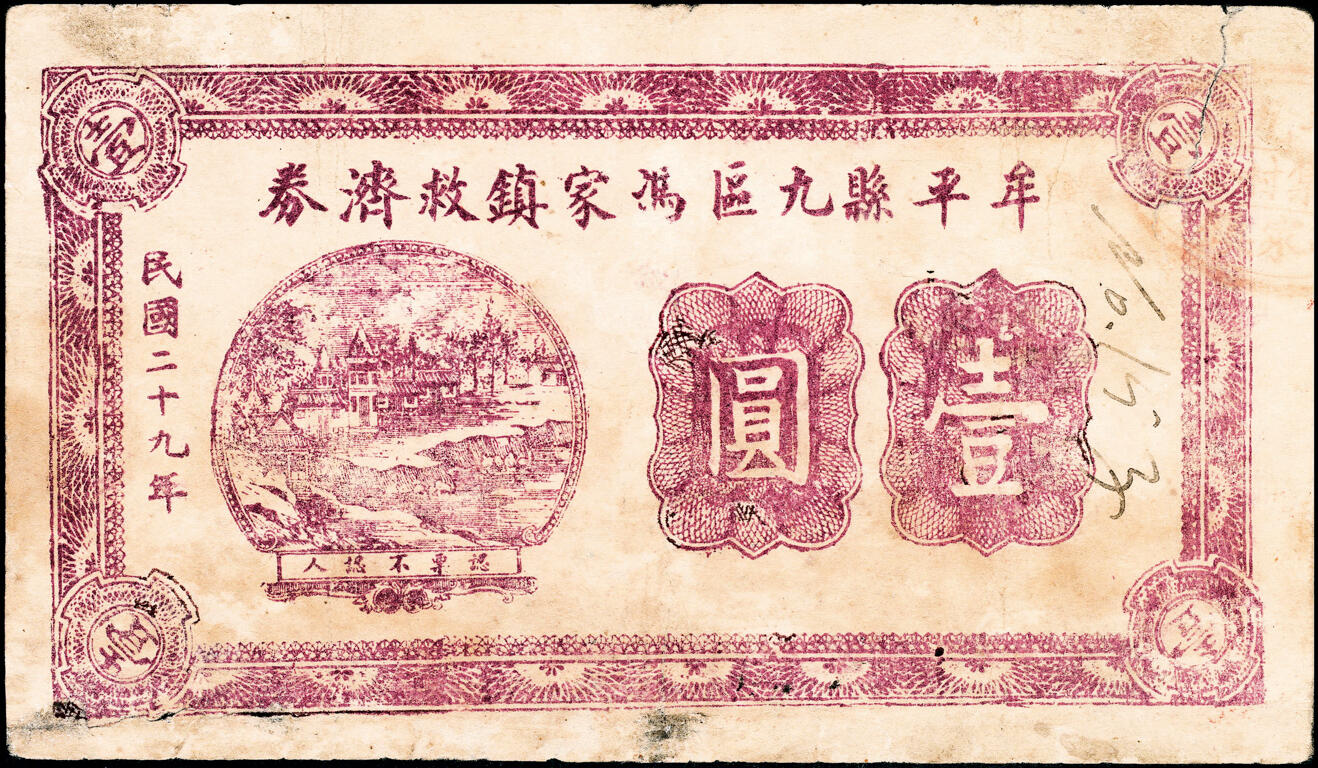 牟平縣九區馮家鎮救濟券
壹圓
民國二十九年
認票不認人
壹
壹
壹
壹